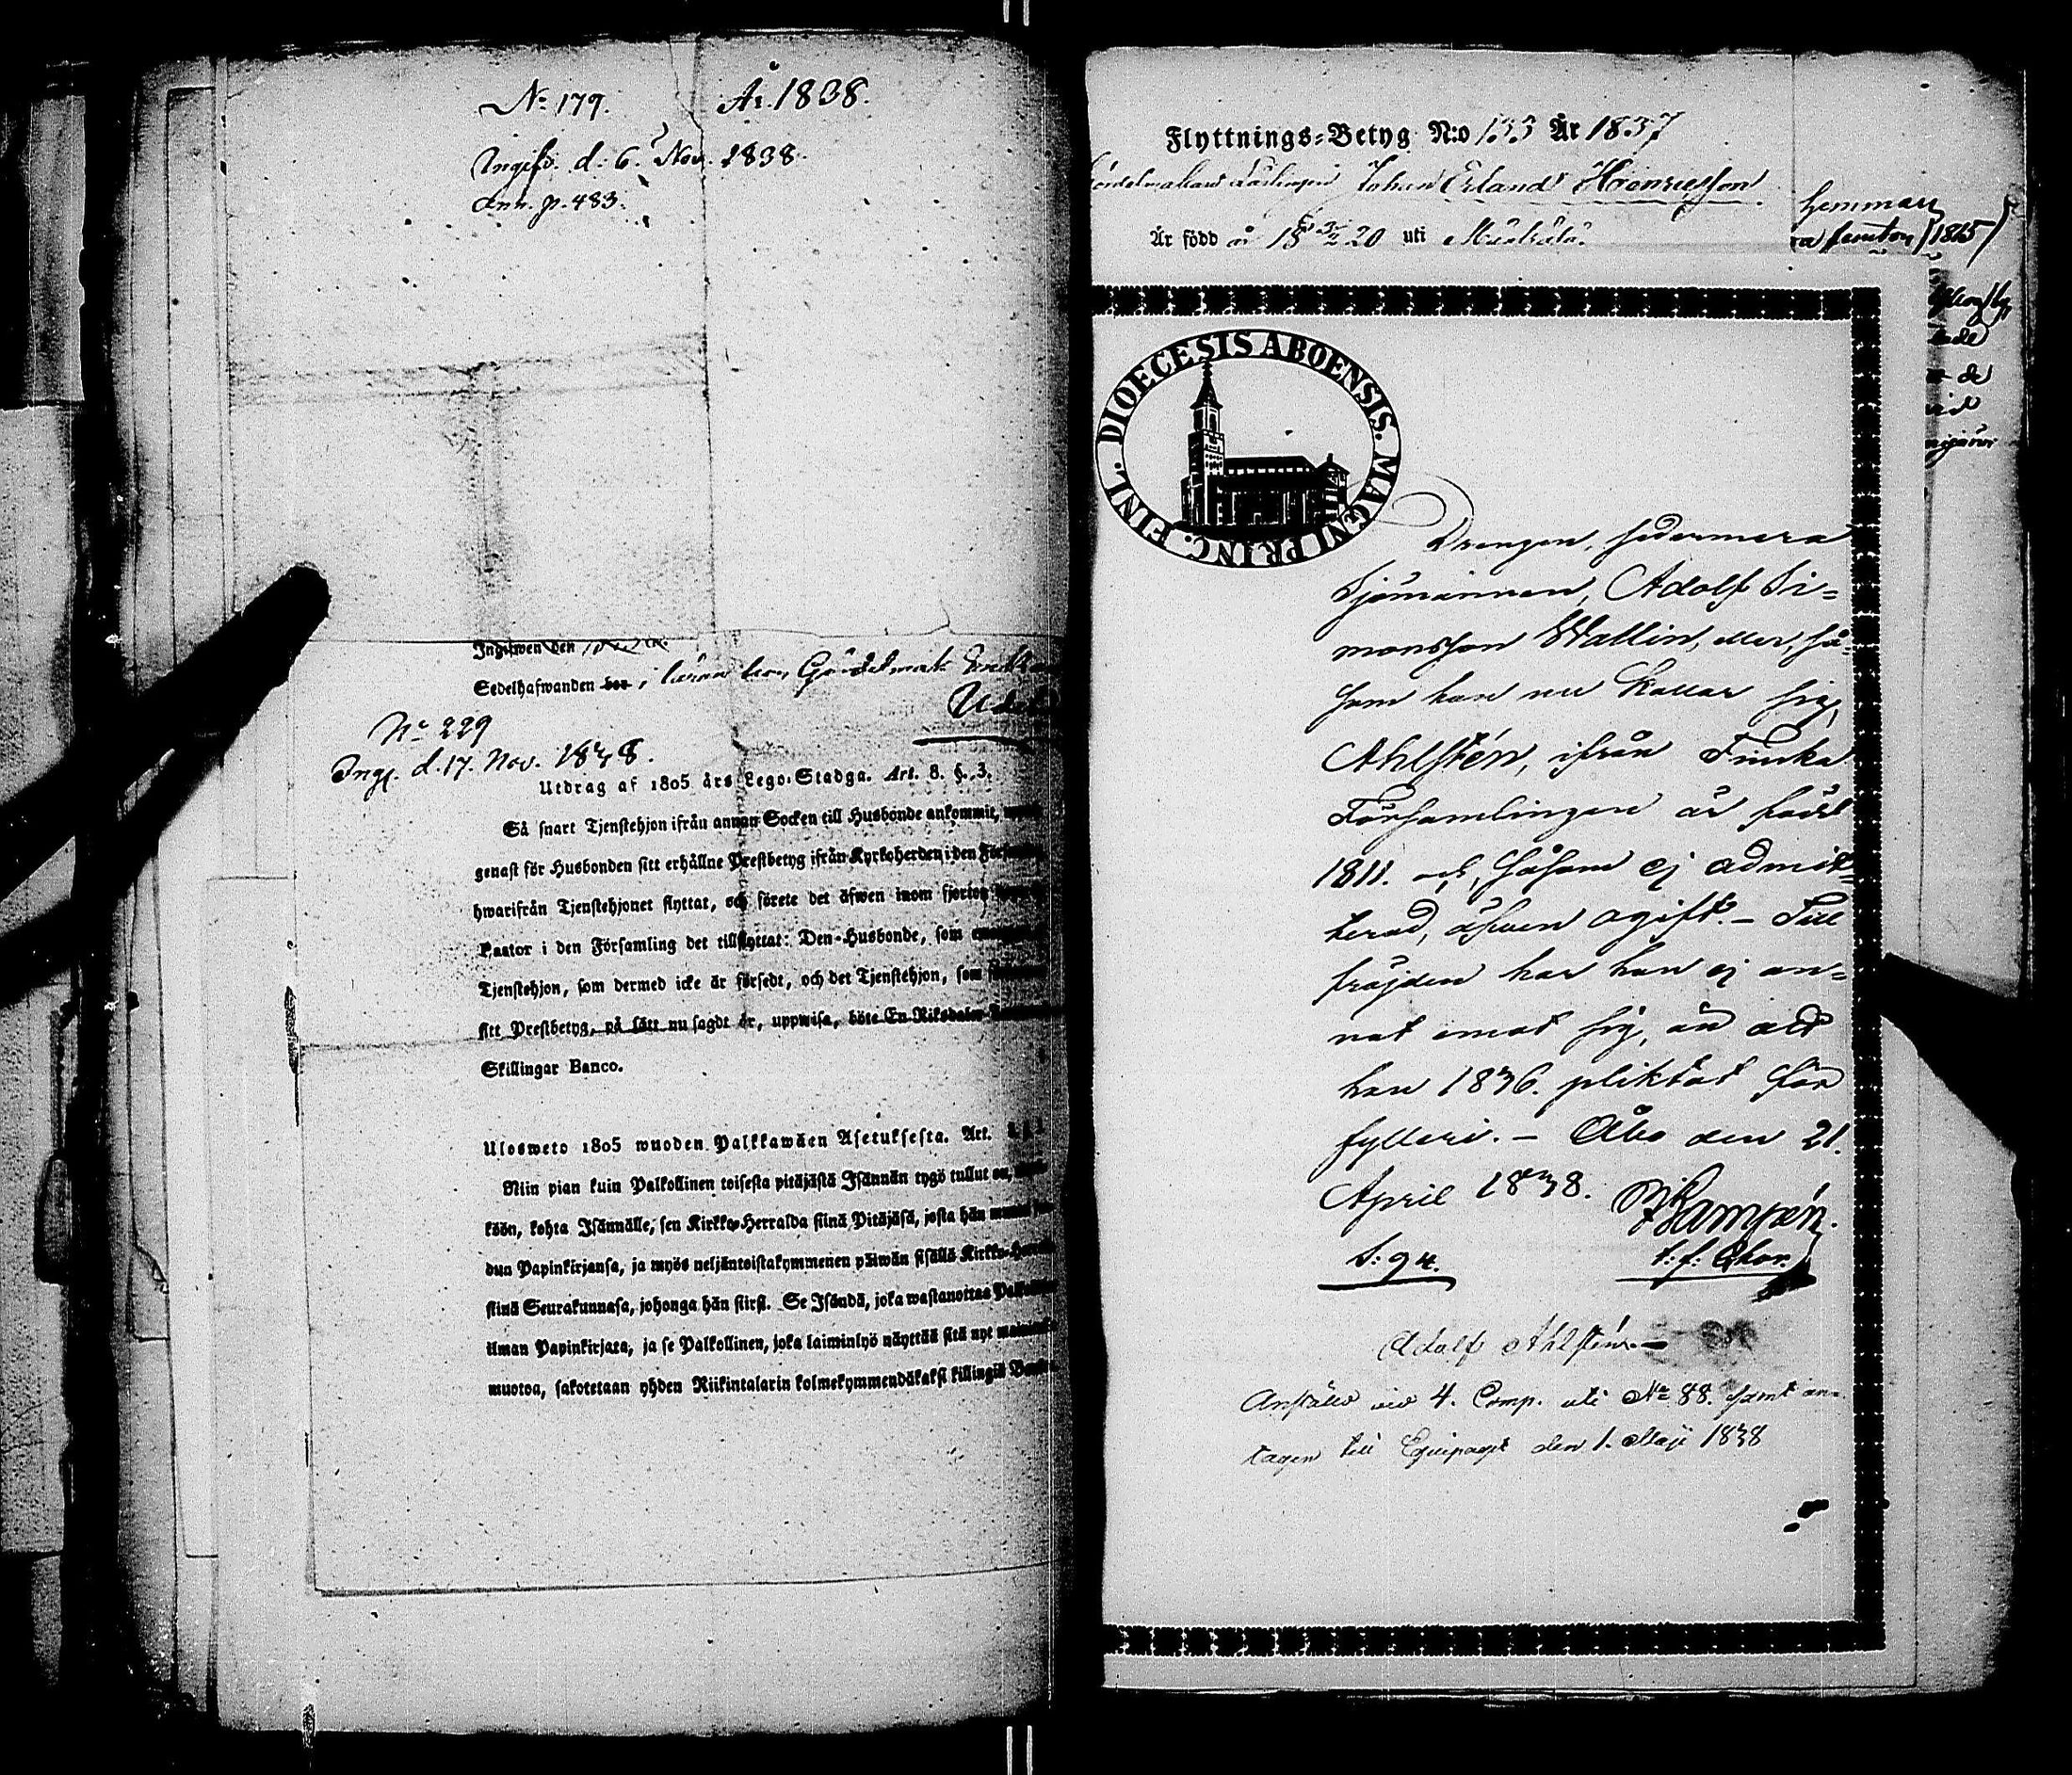 No 179. År 1838.
Ingifs. d: 6. Nov. 1838.
Ann. p. 483.
Ingifwen den
Sedelhafwanden hos,
No 229
Ingf. d. 17. Nov. 1838.
Utdrag af 1805 års Lego-Stadga. Art. 8. §. 3.
Så snart Tjenstehjon ifrån annan Socken till Husbonde ankommit,
genast för Husbonden sitt erhållne Prestbetyg ifrån Kyrkoherden i den
hwarifrån Tjenstehjonet flyttat, och förete det äfwen inom fjorton
Pastor i den Församling det tillflyttat: Den Husbonde, som
Tjenstehjon, som dermed icke är försedt, och det Tjenstehjon, som
sitt Prestbetyg, på sätt nu sagdt är, uppwisa, böte En Riksdaler
Skillingar Banco.
Ulosweto 1805 wuoden Palkkawäen Asetuksesta. Art.
Niin pian kuin Palkollinen toisesta pitäjästä Isännän tygö tullut on,
köön, kohta Isännälle, sen Kirkko-Herralda siinä Pitäjäsä, josta hän
dun Papinkirjansa, ja myös neljäntoistakymmenen päiwän sisällä
siinä Seurakunnasa, johonga hän siirsi. Se Isändä, joka wastanottaa
ilman Papinkirjata, ja se Palkollinen, joka laiminlyö näyttää sitä nyt
muotoa, sakotetaan yhden Riikintalarin kolmekymmendäkaksi killingiä
Flyttnings-Betyg N:o 133 År 1837
Johan Erland Henricsson
Är född år 18 20 uti
hemman
1815
DIOECESIS ABOENSIS. MAGNI PRINC. FINL.
Drengen, sedermera
Sjömannen, Adolf Si=
monsson Wallin, eller, så=
som han nu kallar sig,
Ahlstén, ifrån Finska
Församlingen är född
1811. och, såsom ej admit=
terad, äfven ogift. – Till
fräjden har han ej an=
nat emot sig, än att
han 1836. pliktat för
fylleri. – Åbo den 21.
April 1838.
Adolf Ahlstén.
Anstäld vid 4. Comp. uti No 88. samt an-
tagen till Equipaget den 1. Maji 1838